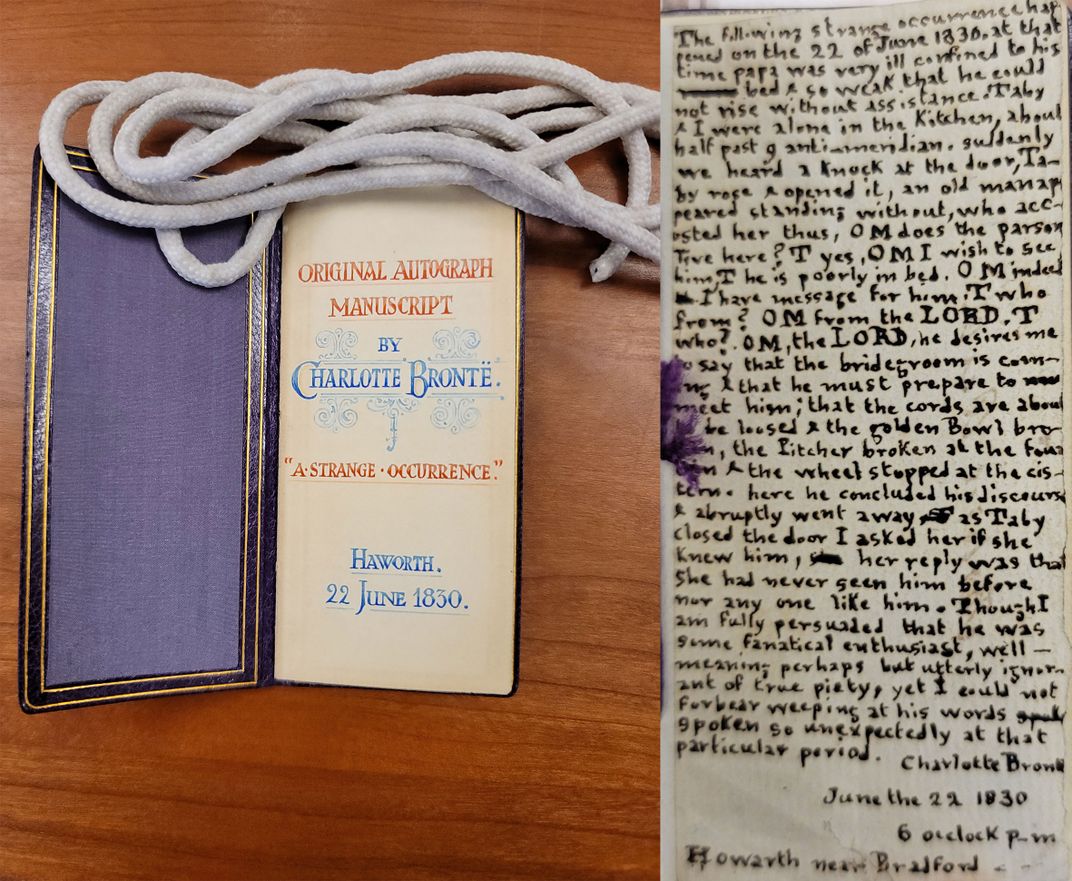 ORIGINAL AUTOGRAPH
MANUSCRIPT
BY
CHARLOTTE BRONTË.
"A·STRANGE·OCCURRENCE"
HAWORTH.
22 JUNE 1830.
The following strange occurrence hap
pened on the 22 of June 1830. at that
time papa was very ill confined to his
bed & so weak that he could
not rise without assistance. Taby
& I were alone in the Kitchen, about
half past 9 anti-meridian. suddenly
we heard a knock at the door, Ta-
by rose & opened it, an old man ap
peared standing without, who acc-
osted her thus, OM does the parson
live here? T yes, OM I wish to see
him, T he is poorly in bed. OM indeed
I have message for him. T who
from? OM from the LORD. T
who? OM, the LORD, he desires me
to say that the bridegroom is com-
ing & that he must prepare to
meet him; that the cords are about
be loosed & the golden Bowl bro-
, the Pitcher broken at the foun
in & the wheel stopped at the cis-
tern. here he concluded his discourse
& abruptly went away as Taby
closed the door I asked her if she
knew him, her reply was that
she had never seen him before
nor any one like him. Though I
am fully persuaded that he was
some fanatical enthusiast, well-
meaning perhaps but utterly ignor-
ant of true piety, yet I could not
forbear weeping at his words
spoken so unexpectedly at that
particular period. Charlotte Bronte
June the 22 1830
6 oclock p-m
Howarth near Bradford